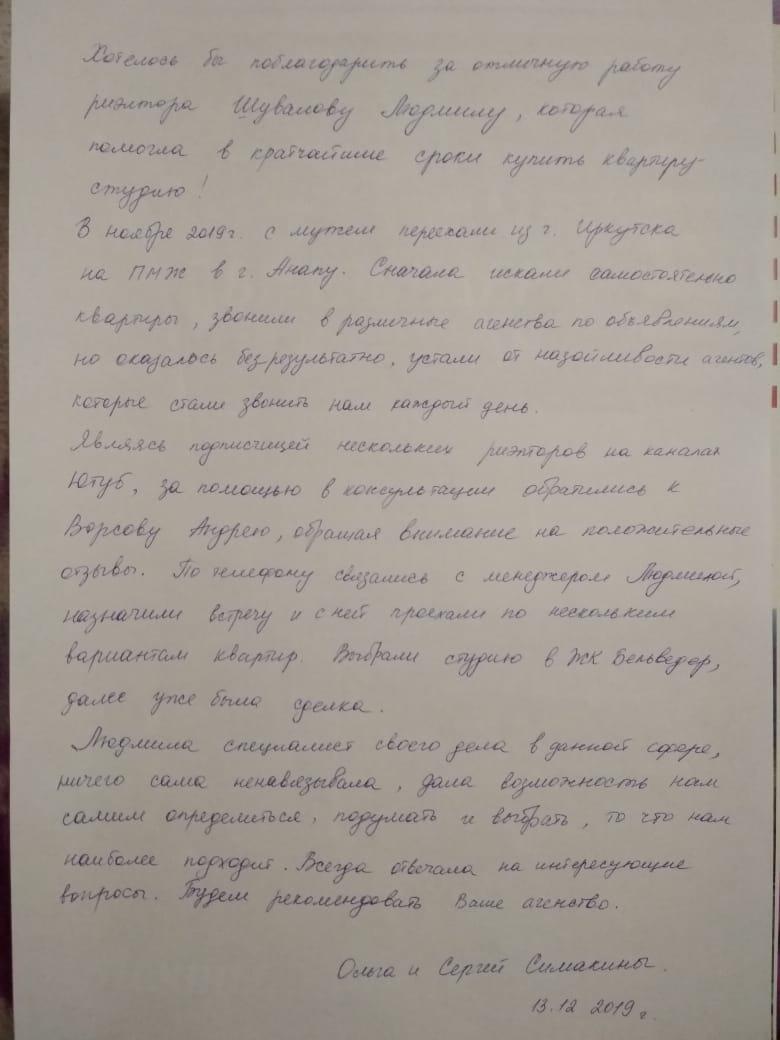 Хотелось бы поблагодарить за отличную работу
риэлтора Шувалову Людмилу, которая
помогла в кратчайшие сроки купить квартиру-
студию!
В ноябре 2019г. с мужем переехали из г. Иркутска
на ПМЖ в г. Анапу. Сначала искали самостоятельно
квартиры, звонили в различные агенства по объявлениям,
но оказалось безрезультатно, устали от назойливости агентов,
которые стали звонить нам каждый день.
Являясь подписчицей нескольких риэлторов на каналах
Ютуб, за помощью в консультации обратились к
Ворсову Андрею, обращая внимание на положительные
отзывы. По телефону связались с менеджером Людмилой,
назначили встречу и с ней проехали по нескольким
вариантам квартир. Выбрали студию в ЖК Бельведер,
далее уже была сделка.
Людмила специалист своего дела в данной сфере,
ничего сама ненавязывала, дала возможность нам
самим определиться, подумать и выбрать, то что нам
наиболее подходит. Всегда отвечала на интересующие
вопросы. Будем рекомендовать Ваше агенство.
Ольга и Сергей Симакины.
13.12 2019г.